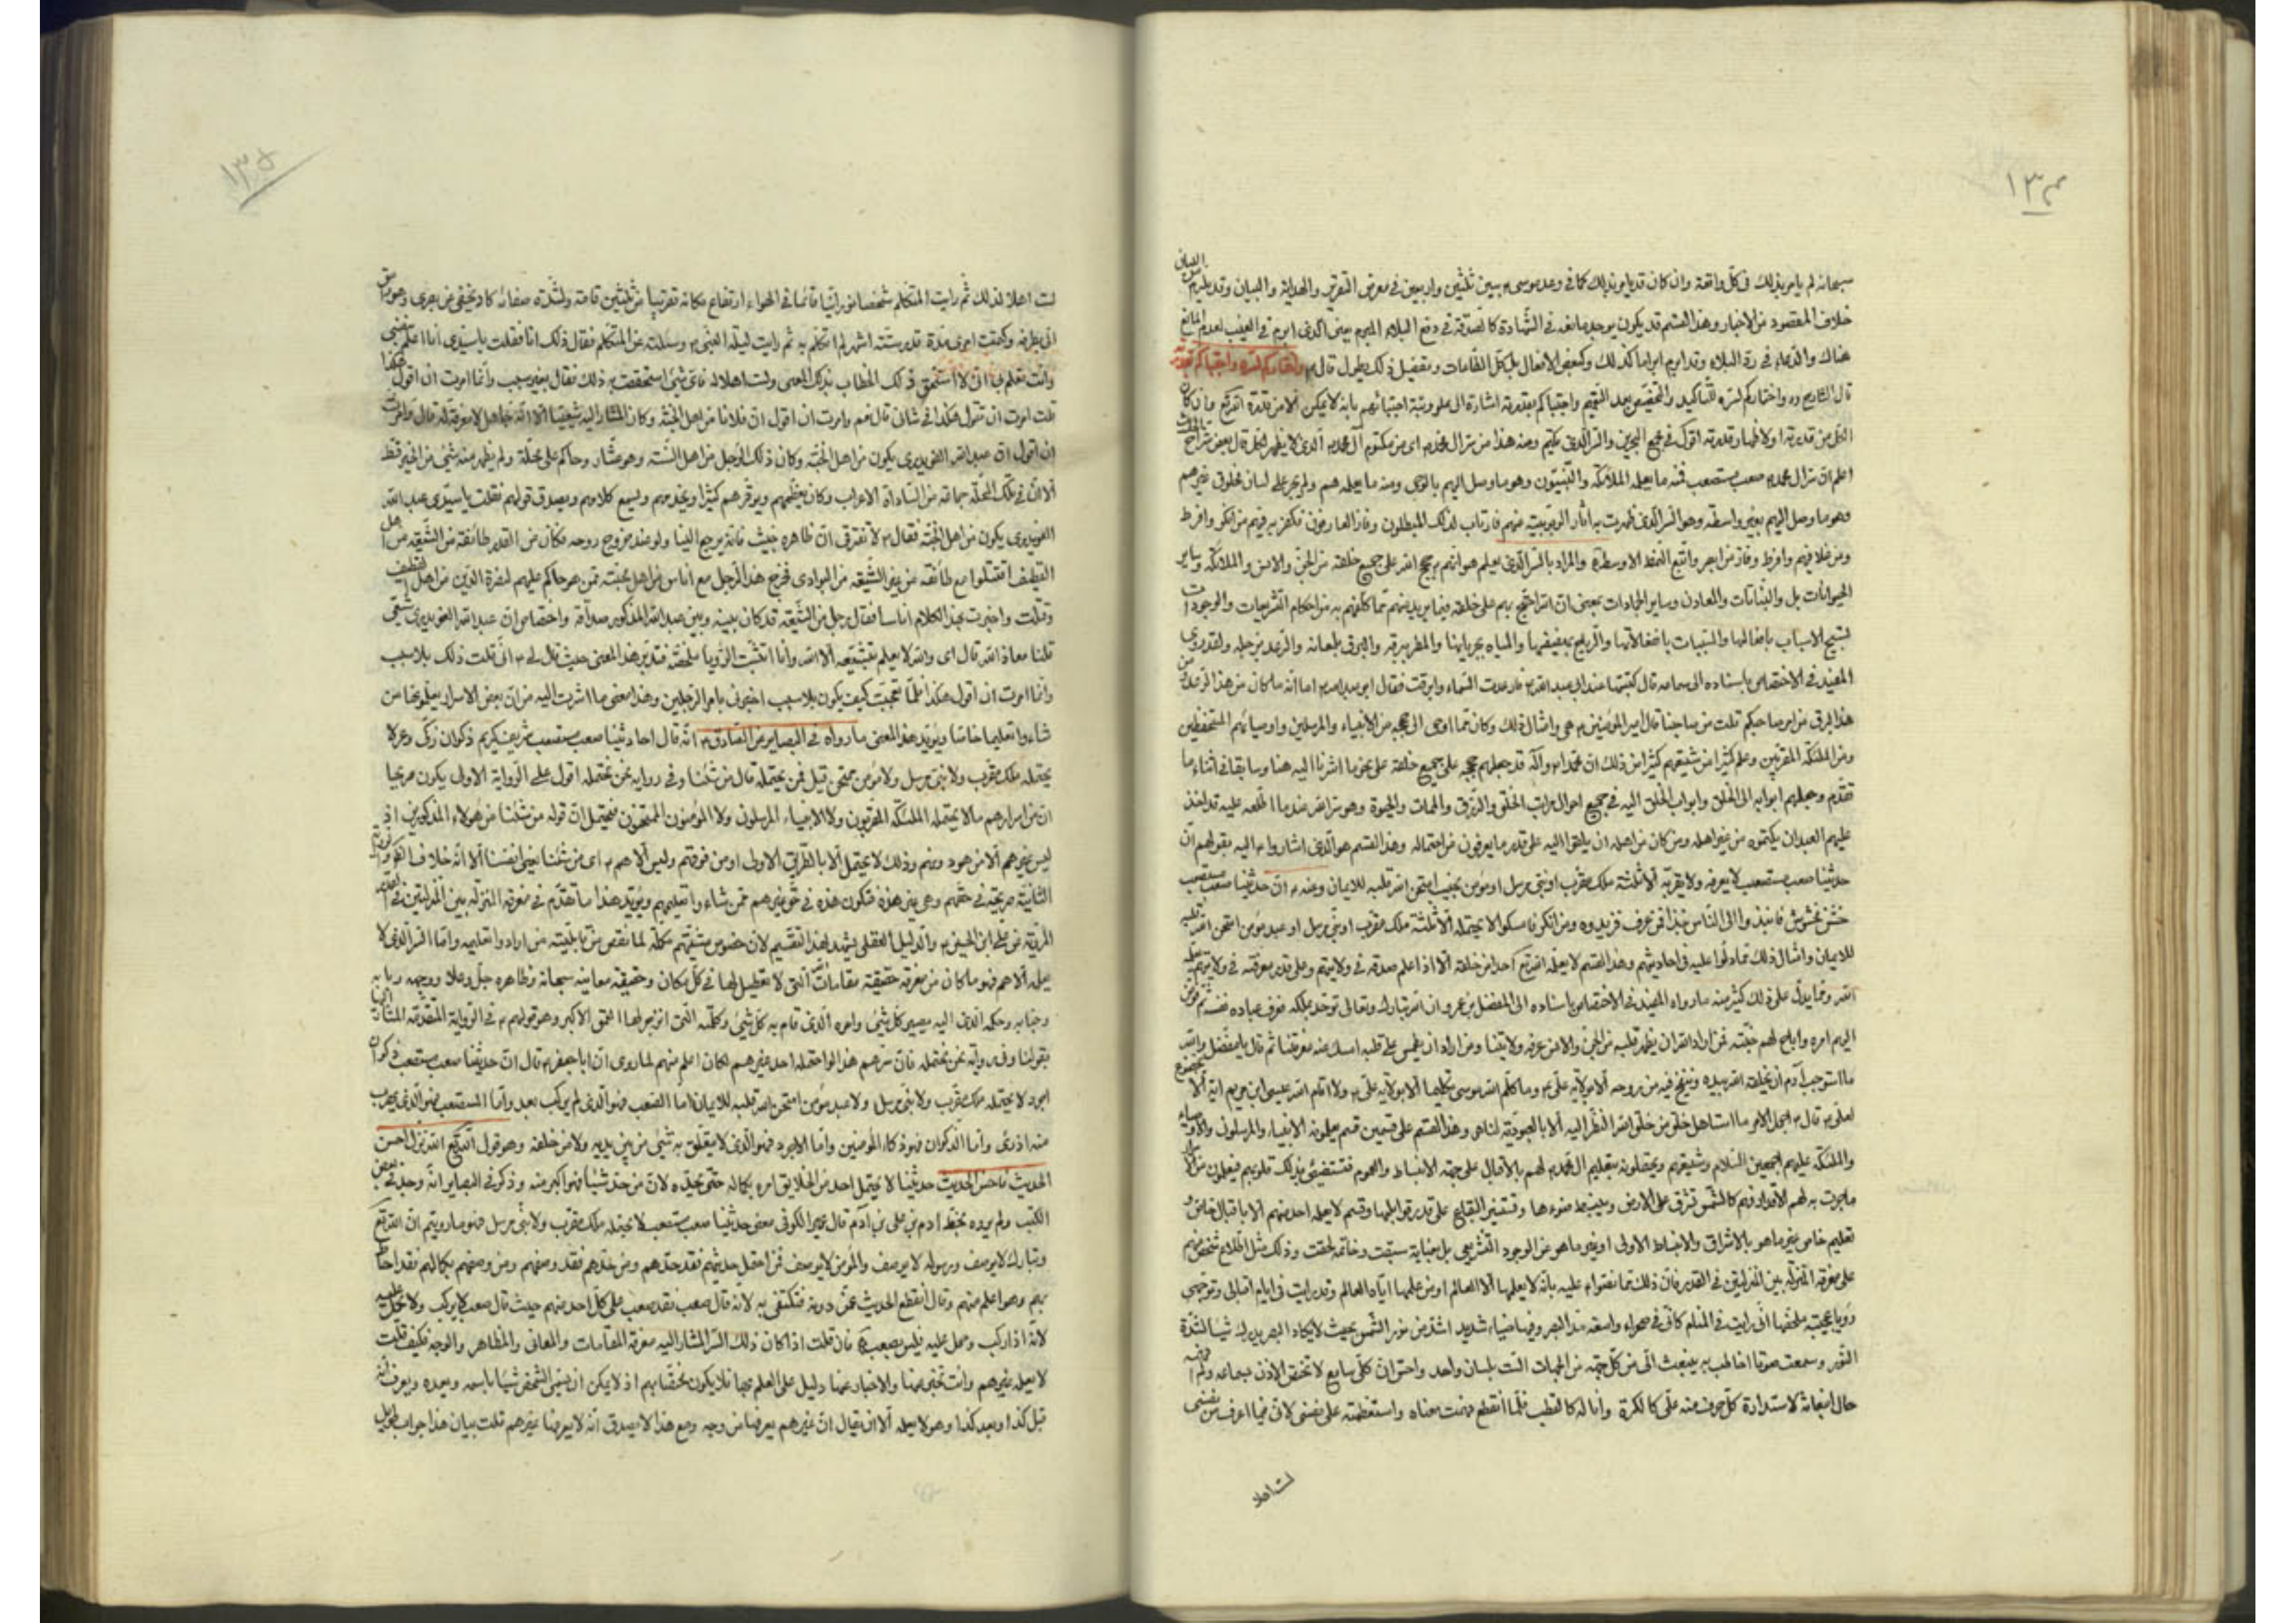 ١٣٤
سبحانه لم يامر بذلك فى كلّ واقعة وان كان قد يامر بذلك كما فى وعد موسى ع بين ثلثين واربعين فى معرض التعرض والهداية والبيان وقد يلهم من البيان
خلاف المقصود من الاخبار وهذا القسم قد يكون يوجد مانعه فى الشهادة كالصدقة فى دفع البلاء المبرم يعنى الذى ابرم فى الغيب لعدم المانع
هناك والدعاء فى ردّ البلاء وقد ابرم ابراما كذلك وكبعض الافعال بل كلّ الطاعات وتفصيل ذلك يطول قال ع واختاركم لسره واجتباكم بقدرته
قال الشارح ره واختاركم لسره للتاكيد والتخصيص بعد التعميم واجتباكم بقدرته اشارة الى علو رتبة اجتبائهم بانه لا يمكن الا من قدرة الله تع وان كان
الكل من قدرته او لاظهار قدرته اقول فى مجمع البحرين والسر الذى يكتم ومنه هذا من سر ال محمد ع اى من مكتوم آل محمد ع الذى لا يظهر لكل قال بعض شراح الحديث
اعلم ان سر ال محمد ع صعب مستصعب فمنه ما يعلمه الملائكة والنبيون وهو ما وصل اليهم بالوحى ومنه ما يعلمه هم ولم يجر على لسان مخلوق غيرهم
وهو ما وصل اليهم بغير واسطة وهو السر الذى ظهرت به اثار الربوبية عنهم فارتاب لذلك المبطلون وفاز العارفون فكفر به فيهم من انكر وافرط
ومن غلا فيهم وافرط وفاز من ابصر واتبع النمط الاوسط ره والمراد بالسر الذى يعلم هو انهم ع حجج الله على جميع خلقه من الجن والانس والملائكة وساير
الحيوانات بل والنباتات والمعادن وساير الجمادات بمعنى ان الله احتج بهم على خلقه فيما يريد منهم مما كلفهم به من احكام التشريعات والوجودات
تسبيح الاسباب بافعالها والمسببات بانفعالاتها والرياح بعصيفها والمياه بجريانها والمطر ببرقه والبرق بلمعانه والرعد بزجله ولقد روى
المفيد فى الاختصاص باسناده الى سماعة قال كنت عند ابى عبد الله ع فارعدت السماء وابرقت فقال ابو عبد الله ع اما انه ما كان من هذا الرعد ومن
هذا البرق من امر صاحبكم قلت من صاحبنا قال امير المؤمنين ع هى وامثال ذلك وكان مما اوحى الى حججه من الانبياء والمرسلين واوصيائهم المستحفظين
ومن الملئكة المقربين وعلم كثيرا من شيعتهم كثيرا من ذلك ان محمدا ص واله قد جعلهم حججه على جميع خلقه على نحو ما اشرنا اليه هنا وسابقا فى اثناء ما
تقدم وجعلهم ابوابه الى الخلق وابواب الخلق اليه فى جميع احوال مراتب الخلق والرزق والممات والحيوة وهو سر الله عند ما اطلعه عليه قد اخذ
عليهم العهد ان يكتموه من غير اهله ومن كان من اهله ان يلقوا اليه على قدر ما يعرفون من احتماله وهذا القسم هو الذى اشاروا ع اليه بقولهم ان
حديثنا صعب مستصعب لا يعرفه ولا يقر به الا ثلثة ملك مقرب او نبى مرسل او مؤمن نجيب امتحن الله قلبه للايمان وعنه ع ان حديثنا صعب مستصعب
خشن مخشوش فانبذوا الى الناس نبذا فمن عرف فزيدوه ومن انكر فامسكوا لا يحتمله الا ثلثة ملك مقرب او نبى مرسل او عبد مؤمن امتحن الله قلبه
للايمان وامثال ذلك مما دلوا عليه فى احاديثهم وهذا القسم لا يعلم الله تع احدا من خلقه الا اذا علم صدقه فى ولايتهم وعلى قدر معرفته فى ولايتهم يعلمه
الله ومما يدل على ذلك كثير منه ما رواه المفيد فى الاختصاص باسناده الى المفضل بن عمرو ان الله تبارك وتعالى توحد بملكه فعرف عباده نفسه ثم فوض
اليهم امره واباح لهم جنته فمن اراد الله ان يطهر قلبه من الجن والانس عرفه ولايتنا ومن اراد ان يطمس على قلبه امسك عنه معرفتنا ثم قال يا مفضل والله
ما استوجب آدم ان يخلقه الله بيده وينفخ فيه من روحه الا بولاية على ع وما كلم الله موسى تكليما الا بولاية على ع ولا اقام الله عيسى ابن مريم اية الا بالخضوع
لعلى ع ثم قال ع اجمل الامر ما استاهل خلق من خلق الله النظر اليه الا بالعبودية لنا هى وهذا القسم على قسمين قسم يعلمونه الانبياء والمرسلون والاوصياء
والملئكة عليهم اجمعين السلام وشيعتهم ويعقلونه بتعليم ال محمد ع لهم بالاقبال على جهة الانبساط والعموم فتستضيئ بذلك قلوبهم فيعلمون من الاسرار
ما جرت به لهم الاقدار وهم كالشمس تشرق على الارض وينبسط ضوءها وتستنير البقاع على قدر قوابلها وقسم لا يعلمه احد منهم الا باقبال خاص و
تعليم خاص غير ما هو بالاشراق والانبساط الاولى او بغير ما هو من الوجود التشريعى بل بعناية سبقت وخاتمة لحقت وذلك مثل اطلاع شخص منهم
على معرفة المنزلة بين المنزلتين فى القدر فان ذلك مما نصوا ع عليه بانه لا يعلمها الا العالم او من علمها اياه العالم وقد رايت فى ايام اقبالى وتوجهى
رؤيا عجيبة ملخصها انى رايت فى المنام كانى فى صحراء واسعة مد البصر وفيها ضياء شديد اشد من نور الشمس بحيث لا يكاد البصر يدرك شيئا لشدة
النور وسمعت صوتا اخاطب به ينبعث الى من كل جهة من الجهات الست بلسان واحد واحس ان كلى سامع لا تختص الاذن بسماعه ولم
حال انبعاثه لاستدارة كل حرف منه على كالكرة وانا له كالقطب فلما انقطع فهمت معناه واستعظمته على نفسى لان فيما اعرف من نفسى
لست اهلا
١٣٥
لست اهلا لذلك ثم رايت المتكلم شخصا نورانيا قائما فى الهواء ارتفاع مكانه تقريبا من ثلثين قامة ولشدة صفائه كاد يخفى عن بصرى وهو متق
الى بطرفه وكتمت امرى مدة قدر ستة اشهر لم اتكلم به ثم رايت ليلة النبى ص وسئلته عن المتكلم فقال ذلك انا فقلت يا سيدى انا اعلم بنفسى
وانت تعلم بى انى لا استحق ذلك الخطاب بذلك المعنى ولست اهلا له فاى شئ استحققت به ذلك فقال بغير سبب وانما امرت ان اقول هكذا
قلت امرت ان تقول هكذا فى شانى قال نعم وامرت ان اقول ان فلانا من اهل الجنة وكان المشار اليه شيعيا الا انه جاهل لا معرفة له قال وامرت
ان اقول ان عبد الله الغويدرى يكون من اهل الجنة وكان ذلك الرجل من اهل السنة وهو عشار وحاكم على محلة ولم يظهر منه شئ من الخير قط
الا ان فى تلك المحلة جماعة من السادات الاعراب وكان يعظمهم ويوقرهم كثيرا ويخدمهم ويسمع كلامهم ويصدق قولهم فقلت يا سيدى عبد الله
الغويدرى يكون من اهل الجنة فقال ص لا تغترى ان ظاهره خبيث فانه يرجع الينا ولو عند خروج روحه فكان من القدر طائفة من الشيعة من اهل
القطيف اقتتلوا مع طائفة من غير الشيعة من البوادى فخرج هذا الرجل مع اناس من اهل محبته ممن هو حاكم عليهم لنصرة الذين من اهل القطيف
وقتلت واخبرت بهذا الكلام اناسا فقال رجل من الشيعة قد كان بينه وبين عبد الله المذكور صداقة واختصاص ان عبد الله الغويدرى شيعى
قلنا معاذ الله قال اى والله لا يعلم بتشيعه الا الله وانا اثبت الرؤيا ملخصة فتدبر هذا المعنى حيث قال لى ص انى قلت ذلك بلا سبب
وانما امرت ان اقول هكذا فلما تعجبت كيف يكون بلا سبب اخبرنى بامر الرجلين وهذا معنى ما اشرت اليه من ان بعض الاسرار يعلمونها من
شاءوا تعليما خاصا ويؤيد هذا المعنى ما رواه فى البصاير عن الصادق ع انه قال احاديثنا صعب مستصعب شريف كريم ذكوان زكى وعر لا
يحتمله ملك مقرب ولا نبى مرسل ولا مؤمن ممتحن قيل فمن يحتمله قال من شئنا وفى رواية نحن نحتمله اقول على الرواية الاولى يكون صريحا
ان من اسرارهم ما لا يحتمله الملئكة المقربون ولا الانبياء المرسلون ولا المؤمنون الممتحنون فيحتمل ان قوله من شئنا من هؤلاء المذكورين اذ
ليس غيرهم الا من هو دونهم وذلك لا يحتمل الا بالطريق الاولى او من فوقهم وليس الا هم ع اى من شئنا يعنى انفسنا الا انه خلاف الظاهر والرواية
الثانية صريحة فى حقهم وهى غير هذه فتكون هذه فى حق غيرهم ممن شاءوا تعليمهم ويؤيد هذا ما تقدم فى معرفة المنزلة بين المنزلتين فى القدر
المروية عن على ابن الحسين ع والدليل العقلى يشهد لهذا التقسيم لان خصوص مشيتهم مكملة لما نقص من قابلية من ارادوا تعليمه واما السر الذى لا
يعلمه الا هم فهو ما كان من معرفة حقيقة مقاماته التى لا تعطيل لها فى كل مكان وحقيقة معانيه سبحانه وظاهره جل وعلا ووجهه وبابه
وجنابه وحكمه الذى اليه يصير كل شئ وامره الذى قام به كل شئ وكلمته التى انزجر لها العمق الاكبر وهو قولهم ع فى الرواية المتقدمة المشار اليها
بقولنا وفى رواية نحن نحتمله فان سرهم هذا لو احتمله احد غيرهم لكان اعلم منهم لما روى ان ابا جعفر ع قال ان حديثنا صعب مستصعب ذكوان
اجرد لا يحتمله ملك مقرب ولا نبى مرسل ولا عبد مؤمن امتحن الله قلبه للايمان اما الصعب فهو الذى لم يركب بعد واما المستصعب فهو الذى يهرب
منه اذ رئى واما الذكوان فهو ذكاء المؤمنين واما الاجرد فهو الذى لا يتعلق به شئ من بين يديه ولا من خلفه وهو قول الله تع الله نزل احسن
الحديث فاحسن الحديث حديثنا لا يحتمل احد من الخلايق امره بكماله حتى يحده لان من حد شيئا فهو اكبر منه وذكر فى البصاير انه وجد فى بعض
الكتب ولم يروه بخط ادم بن على بن آدم قال عمير الكوفى معنى حديثنا صعب مستصعب لا يحتمله ملك مقرب ولا نبى مرسل فهو ما رويتم ان الله تع
وتبارك لا يوصف ورسوله لا يوصف والمؤمن لا يوصف فمن احتمل حديثهم فقد حدهم ومن حدهم فقد وصفهم ومن وصفهم بكمالهم فقد احاط
بهم وهو اعلم منهم وقال انقطع الحديث عمن دونه فتكتفى به لانه قال صعب فقد صعب على كل احد منهم حيث قال صعب لا يركب ولا يحمل عليه
لانه اذا ركب وحمل عليه فليس بصعب فان قلت اذا كان ذلك السر المشار اليه معرفة المقامات والمعانى والمظاهر والوجه فكيف قلت
لا يعلمه غيرهم وانت تخبر عنها والاخبار عنها دليل على العلم بها فلا يكون مختصا بهم اذ لا يمكن ان يسمى الشخص شيئا باسمه ويعده ويعرف انه
قبل كذا وبعد كذا وهو لا يعلمه الا ان يقال ان غيرهم يعرفها من وجه ومع هذا لا يصدق انه لا يعرفها غيرهم قلت بيان هذا جواب طويل